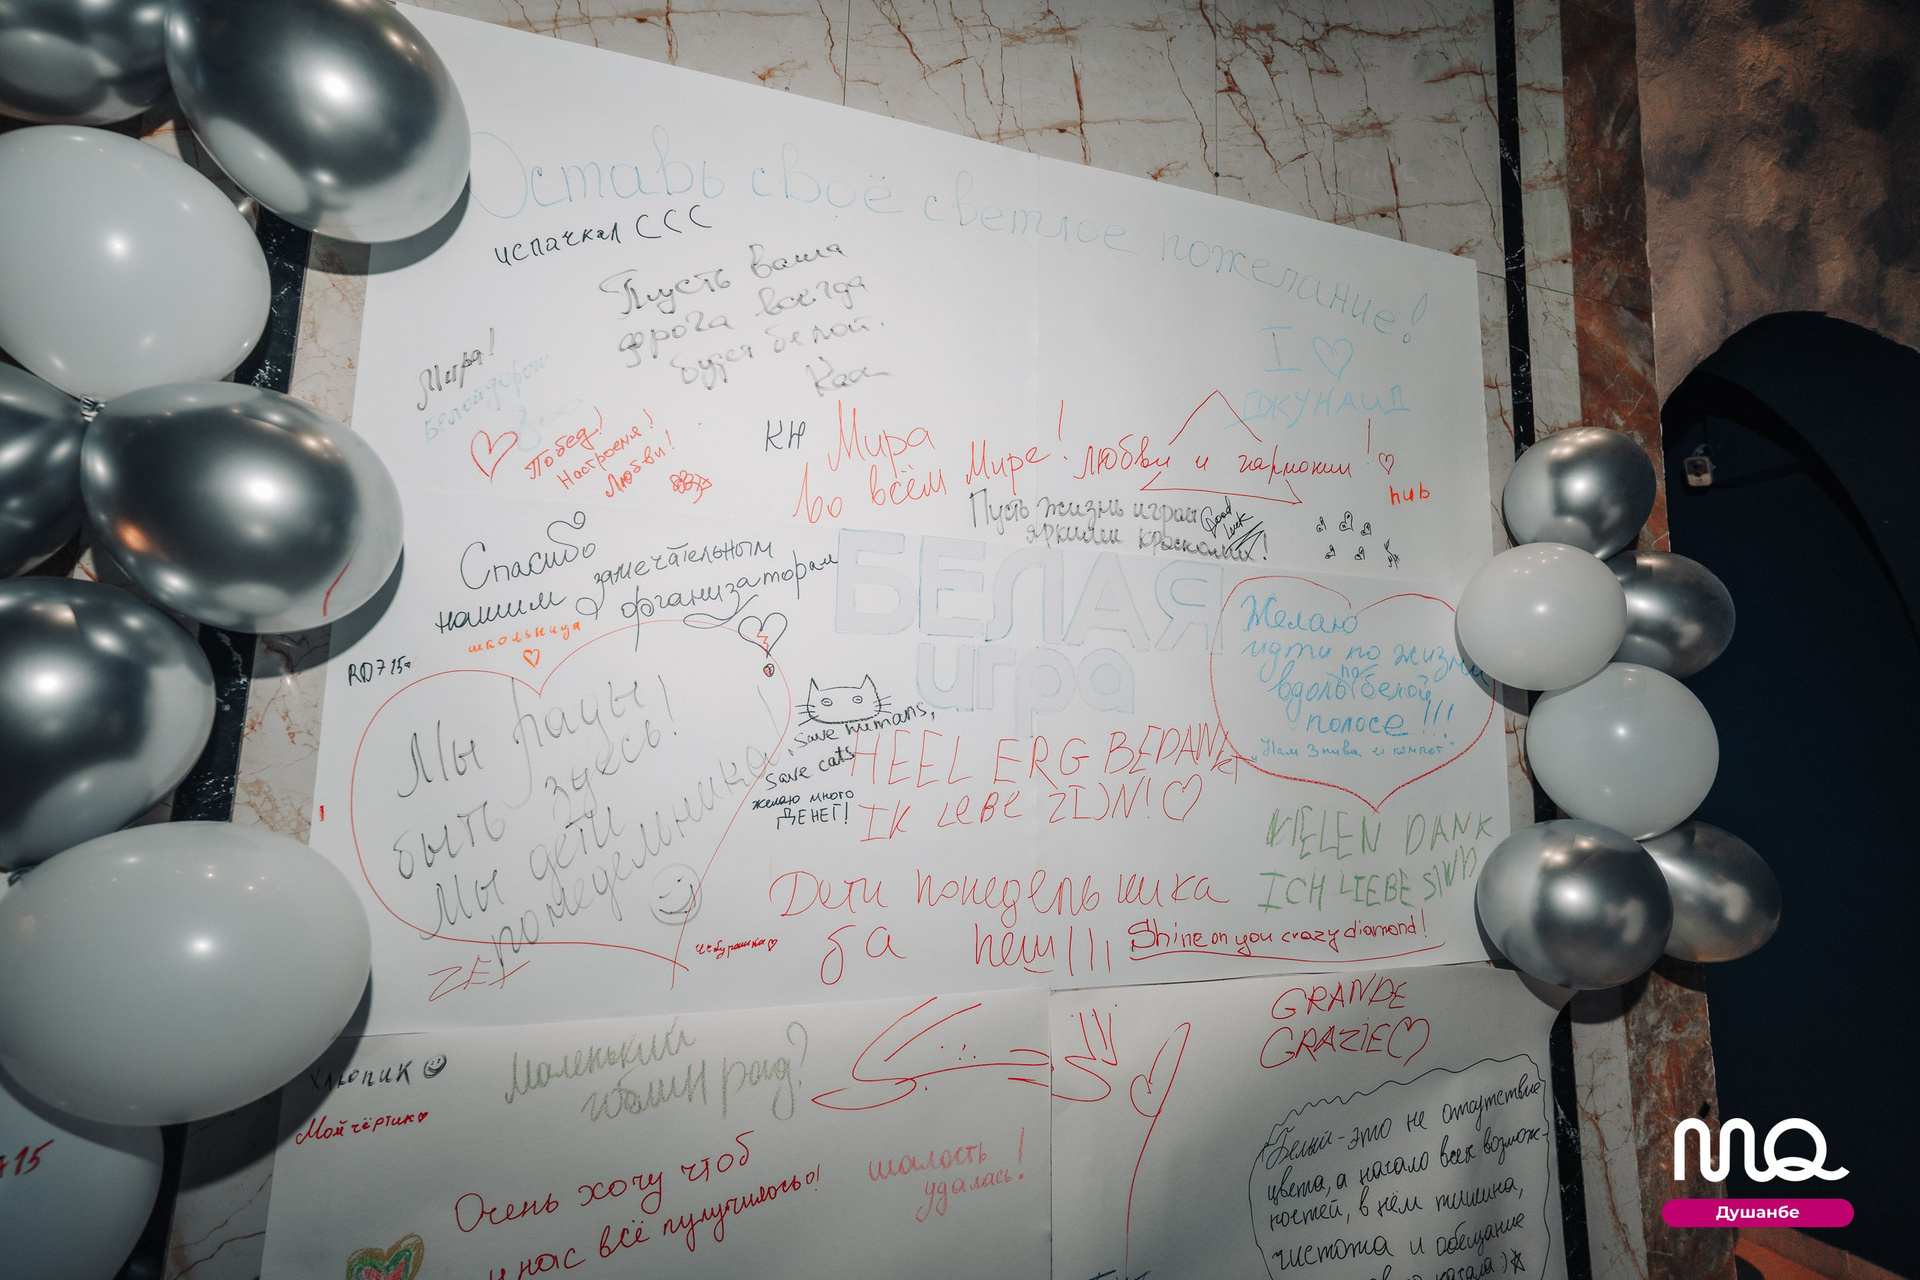 Оставь своё светлое пожелание!
испачкал ССС
Пусть ваша
дорога всегда
будет белой.
I ♡
ДЖУНАИД
Мира!
Белой дороги
Побед!
Настроения!
Любви!
КН
Мира
во всём Мире! любви и гармонии! ♡
hub
Пусть жизнь играет
яркими красками!
Good
luck
Спасибо
нашим замечательным
организаторам
школьница
♡
БЕЛАЯ
игра
RD715
Мы рады
быть здесь!
Мы дети
понедельника!
save humans,
save cats
желаю много
ДЕНЕГ!
Желаю
идти по жизни
вдоль по белой
полосе!!!
"Нам 3 пива и компот"
HEEL ERG BEDANKT
IK LEBE ZIJN! ♡
VIELEN DANK
ICH LIEBE SIND
Дети понедельника
ба неш!!!
Shine on you crazy diamond!
Чебурашка ♡
ZET
Хлюпик
Мой чёртик ♡
Маленький
гоблин рад?
GRANDE
GRAZIE ♡
Очень хочу чтоб
у нас всё пулучилось!
шалость
удалась!
Белый - это не отсутствие
цвета, а начало всех возмож-
ностей, в нём тишина,
чистота и обещание
начала:)
715
MQ
Душанбе